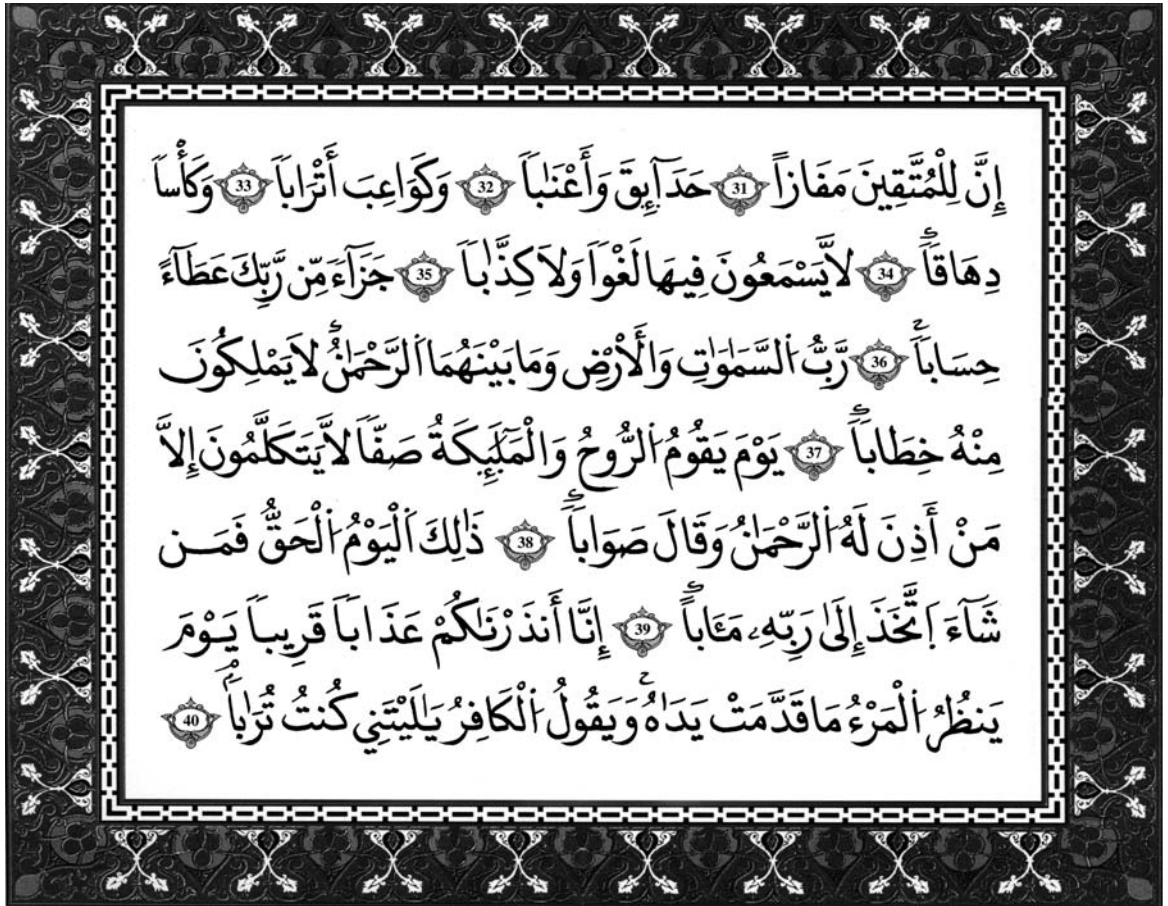 إِنَّ لِلْمُتَّقِينَ مَفَازاً 31 حَدَآئِقَ وَأَعْنَٰباً 32 وَكَوَاعِبَ أَتْرَاباً 33 وَكَأْساً
دِهَاقاً 34 لَّا يَسْمَعُونَ فِيهَا لَغْواً وَلَا كِذَّٰباً 35 جَزَآءً مِّن رَّبِّكَ عَطَآءً
حِسَاباً 36 رَّبُّ اَ۬لسَّمَٰوَٰتِ وَالْأَرْضِ وَمَا بَيْنَهُمَا اَ۬لرَّحْمَٰنُ لَا يَمْلِكُونَ
مِنْهُ خِطَاباً 37 يَوْمَ يَقُومُ اُ۬لرُّوحُ وَالْمَلَٰٓئِكَةُ صَفّاً لَّا يَتَكَلَّمُونَ إِلَّا
مَنْ أَذِنَ لَهُ اُ۬لرَّحْمَٰنُ وَقَالَ صَوَاباً 38 ذَٰلِكَ اَ۬لْيَوْمُ اُ۬لْحَقُّ فَمَن
شَآءَ اَ۪تَّخَذَ إِلَىٰ رَبِّهِۦ مَـَٔاباً 39 إِنَّا أَنذَرْنَٰكُمْ عَذَاباً قَرِيباً يَوْمَ
يَنظُرُ اُ۬لْمَرْءُ مَا قَدَّمَتْ يَدَاهُ وَيَقُولُ اُ۬لْكَافِرُ يَٰلَيْتَنِي كُنتُ تُرَٰباً 40